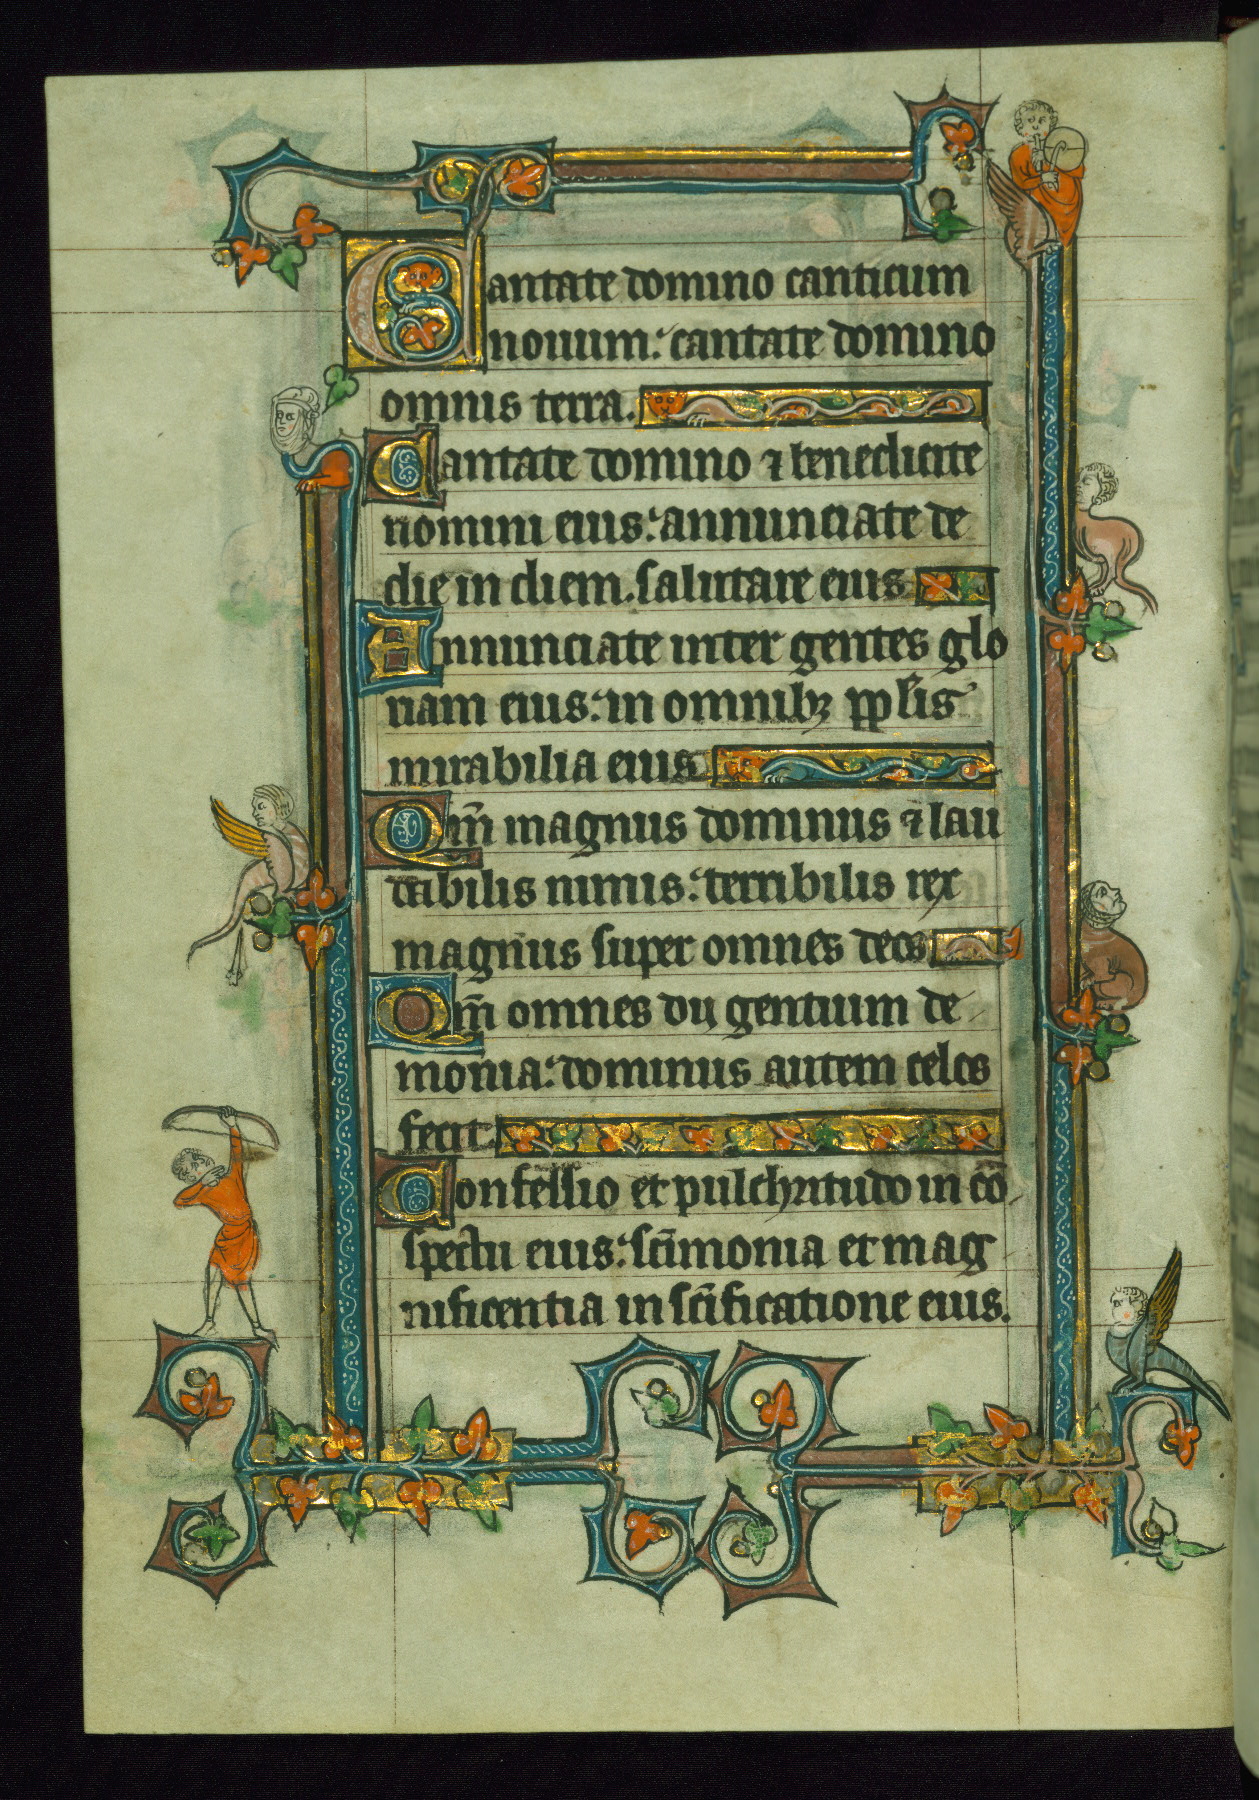 Cantate domino canticum
nouum: cantate domino
omnis terra.
Cantate domino ⁊ benedicite
nomini eius: annunciate de
die in diem. salutare eius
Annunciate inter gentes glo
riam eius: in omnibꝫ ppl̅is
mirabilia eius
Qm̅ magnus dominus ⁊ lau
dabilis nimis: terribilis rex
magnus super omnes deos
Qm̅ omnes dii gentium de
monia: dominus autem celos
fecit.
Confessio et pulchritudo in co̅
spectu eius: sci̅monia et mag
nificentia in sci̅ficatione eius.